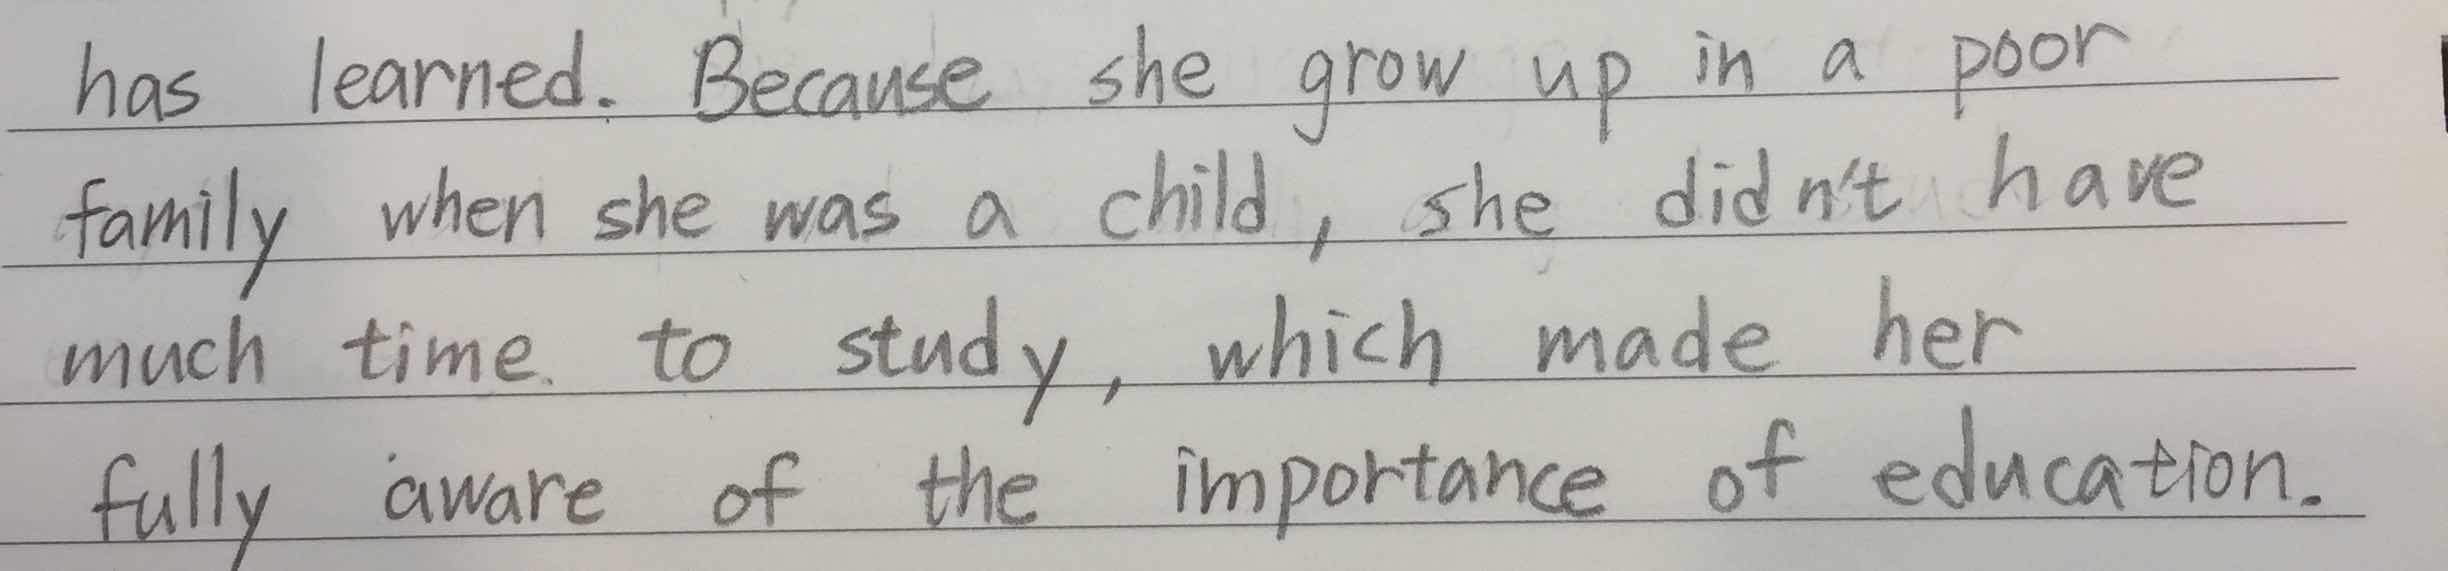 has learned. Because she grow up in a poor
family when she was a child, she didn't have
much time. to study, which made her
fully aware of the importance of education.